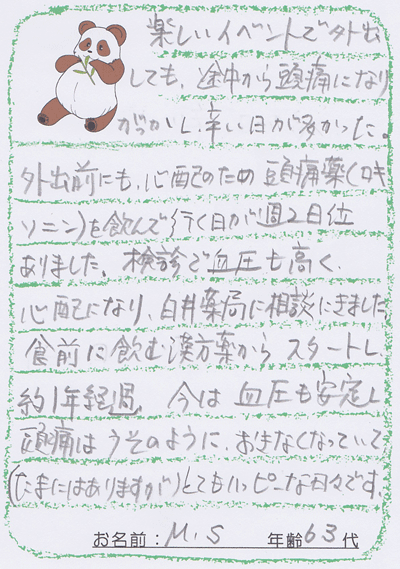 楽しいイベントで外出
しても、途中から頭痛になり
がかし、辛い日が多かった。
外出前にも、心配のため頭痛薬(ロキ
ソニン)を飲んで行く日が週2日位
ありました。検診で血圧も高く、
心配になり、白井薬局に相談にきました
食前に飲む漢方薬からスタートし
約1年経過。今は血圧も安定し
頭痛はうそのように、おきなくなっていて
(たまにはありますが)とてもハッピーな日々です。
お名前:M.S 年齢63代